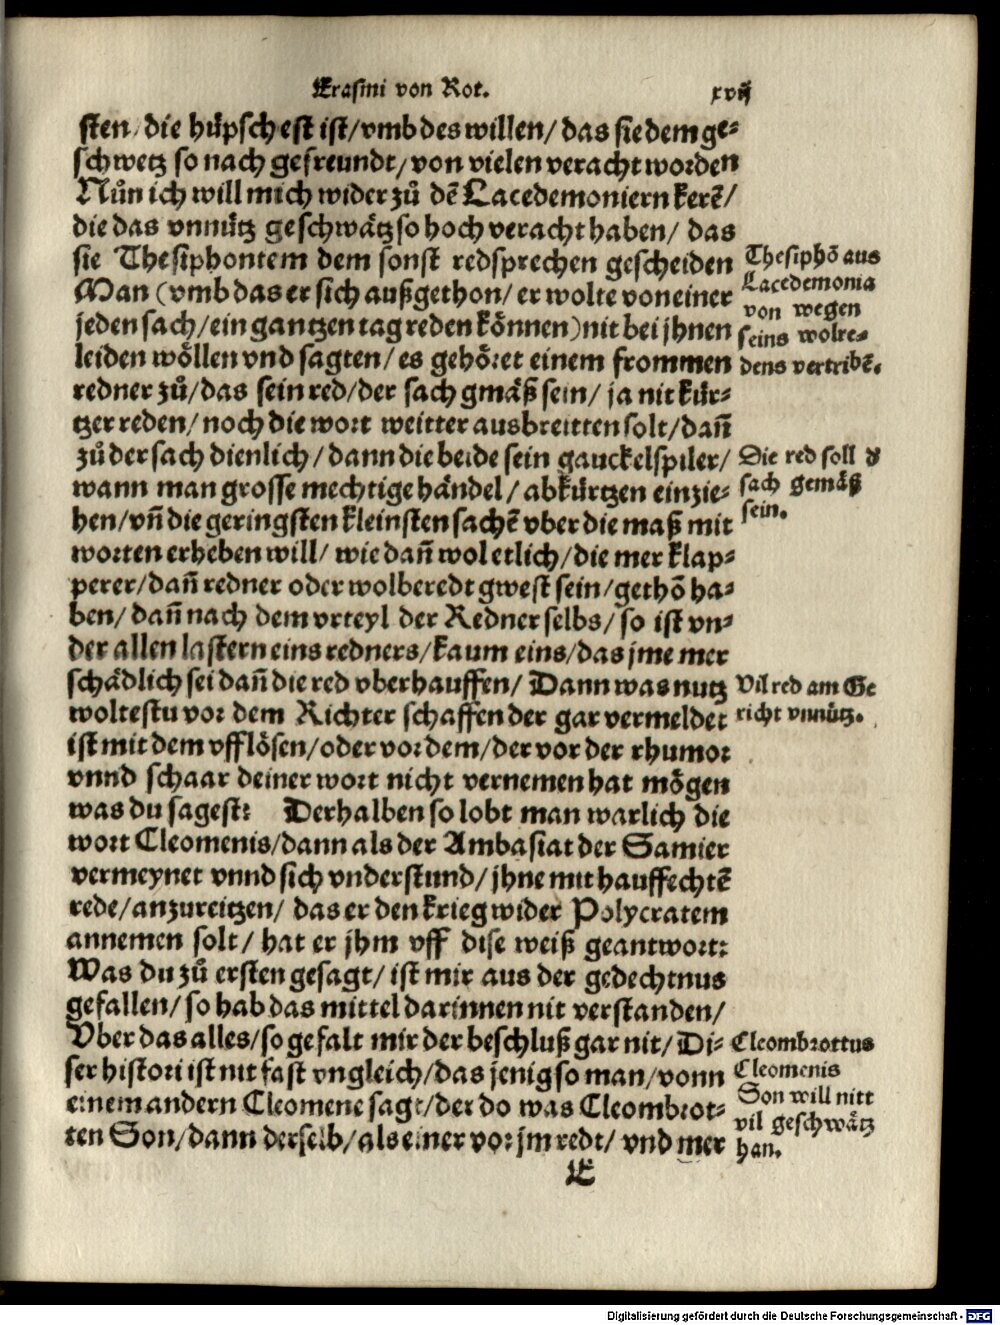 Erasmi von Rot. xvij
sten/ die hüpschest ist/ vmb des willen/ das sie dem ge⸗
schwetz so nach gefreundt/ von vielen veracht worden
Nůn ich will mich wider zů dē Lacedemoniern kerē/
die das vnnütz geschwätz so hoch veracht haben/ das
sie Thesiphontem dem sonst redsprechen gescheiden
Man (vmb das er sich außgethon/ er wolte von einer
jeden sach/ ein gantzen tag reden können) nit bei jhnen
leiden wöllen vnd sagten/ es gehöret einem frommen
redner zů/ das sein red/ der sach gmäß sein/ ja nit kür⸗
tzer reden/ noch die wort weitter ausbreitten solt/ dañ
zů der sach dienlich/ dann die beide sein gauckelspiler/
wann man grosse mechtige händel/ abkürtzen einzie⸗
hen/ vñ die geringsten kleinsten sachē vber die maß mit
worten erheben will/ wie dañ wol etlich/ die mer klap⸗
perer/ dañ redner oder wolberedt gwest sein/ gethō ha⸗
ben/ dañ nach dem vrteyl der Redner selbs/ so ist vn⸗
der allen lastern eins redners/ kaum eins/ das jme mer
schädlich sei dañ die red vberhauffen/ Dann was nutz
woltestu vor dem Richter schaffen der gar vermeldet
ist mit dem vfflösen/ oder vor dem/ der vor der rhumor
vnnd schaar deiner wort nicht vernemen hat mögen
was du sagest: Derhalben so lobt man warlich die
wort Cleomenis/ dann als der Ambasiat der Samier
vermeynet vnnd sich vnderstund/ jhne mit hauffechtē
rede/ anzureitzen/ das er den krieg wider Polycratem
annemen solt/ hat er jhm vff dise weiß geantwort:
Was du zů ersten gesagt/ ist mir aus der gedechtnus
gefallen/ so hab das mittel darinnen nit verstanden/
Vber das alles/ so gefalt mir der beschluß gar nit/ Di⸗
ser histori ist nit fast vngleich/ das jenig so man/ vonn
einem andern Cleomene sagt/ der do was Cleombrot⸗
ten Son/ dann derselb/ als einer vor jm redt/ vnd mer
E
Thesiphō aus
Lacedemonia
von wegen
seins wolre⸗
dens vertribē.
Die red soll d
sach gemäß
sein.
Vil red am Ge
richt vnnütz.
Cleombrottus
Cleomenis
Son will nitt
vil geschwätz
han.
Digitalisierung gefördert durch die Deutsche Forschungsgemeinschaft - DFG